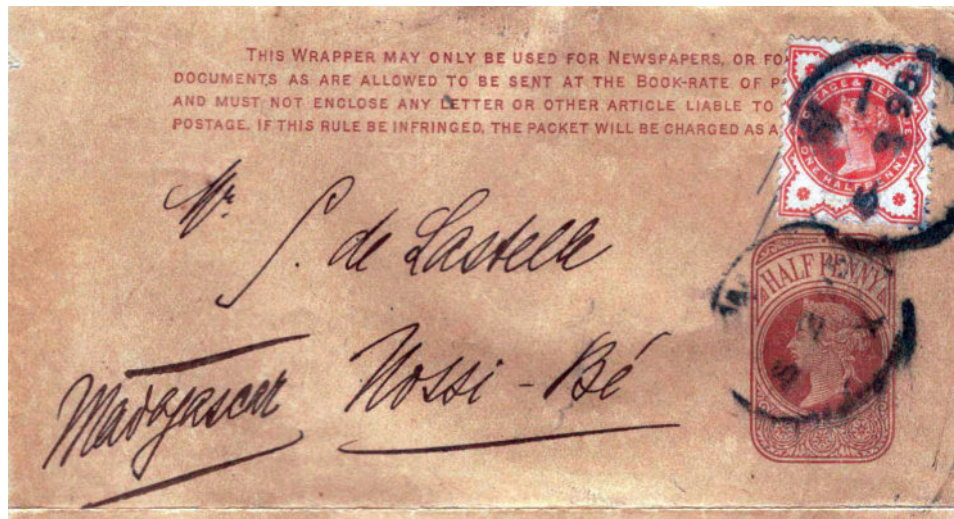 THIS WRAPPER MAY ONLY BE USED FOR NEWSPAPERS, OR FOR
DOCUMENTS AS ARE ALLOWED TO BE SENT AT THE BOOK-RATE OF
AND MUST NOT ENCLOSE ANY LETTER OR OTHER ARTICLE LIABLE TO
POSTAGE. IF THIS RULE BE INFRINGED, THE PACKET WILL BE CHARGED AS A
POSTAGE & REVENUE
ONE HALFPENNY
HALFPENNY
Mr.
S. de Lastelle
Madagascar Nossi-Bé